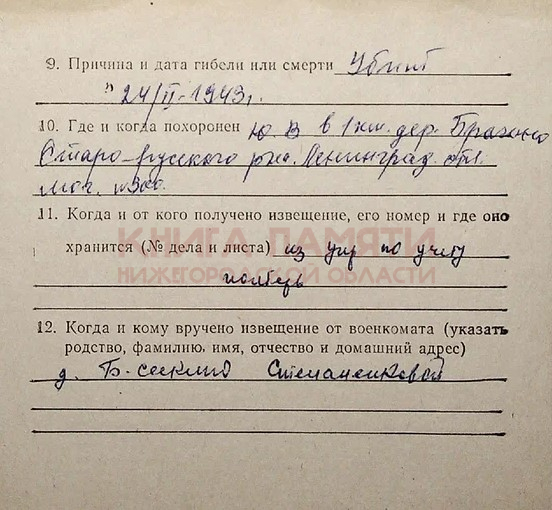 9. Причина и дата гибели или смерти Убит
24/II-1943г.
10. Где и когда похоронен ю в в 1 км. дер.
Старо-русского р-на. Ленинград. обл.
мог. №300.
11. Когда и от кого получено извещение, его номер и где оно
хранится (№ дела и листа) из упр по учету
КНИГА ПАМЯТИ
НИЖЕГОРОДСКОЙ ОБЛАСТИ
12. Когда и кому вручено извещение от военкомата (указать
родство, фамилию, имя, отчество и домашний адрес)
д. Степаненковой